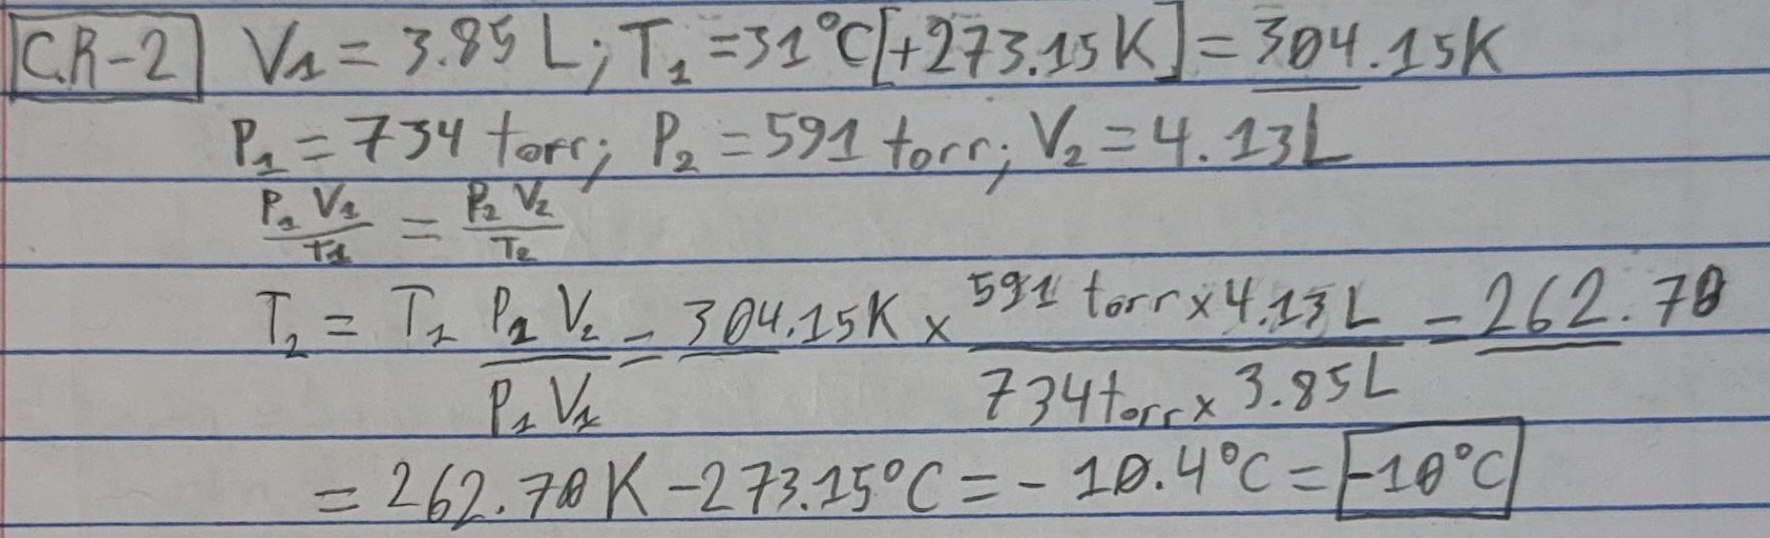 C.R-2 V₁ = 3.85 L; T₁ = 31°C[+273.15K] = 304.15K
P₁ = 734 torr; P₂ = 591 torr; V₂ = 4.13L
P₁ V₁ / T₁ = P₂ V₂ / T₂
T₂ = T₁ P₂ V₂ / P₁ V₁ = 304.15K × 591 torr × 4.13 L / 734 torr × 3.85 L = 262.70
= 262.70 K - 273.15°C = - 10.4°C = -10°C